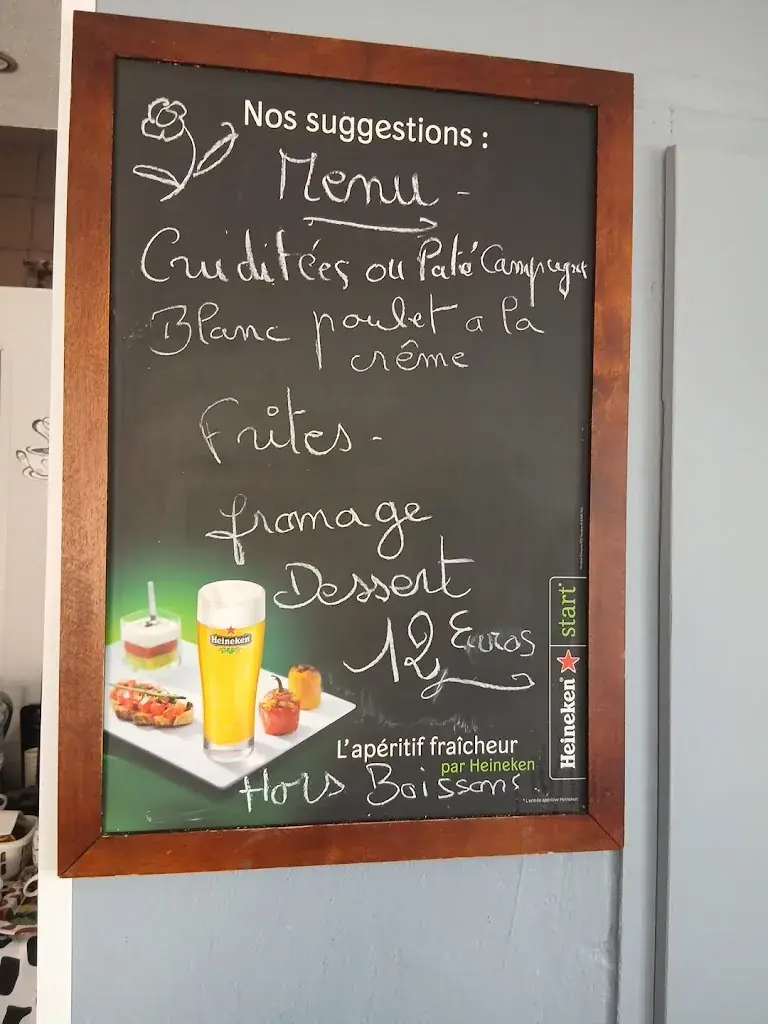 Nos suggestions :
Menu -
Cruditées ou Paté Campagne
Blanc poulet a la
crême
Frites -
fromage
Dessert
12 Euros
Heineken
Heineken start
L'apéritif fraîcheur
par Heineken
Hors Boissons.